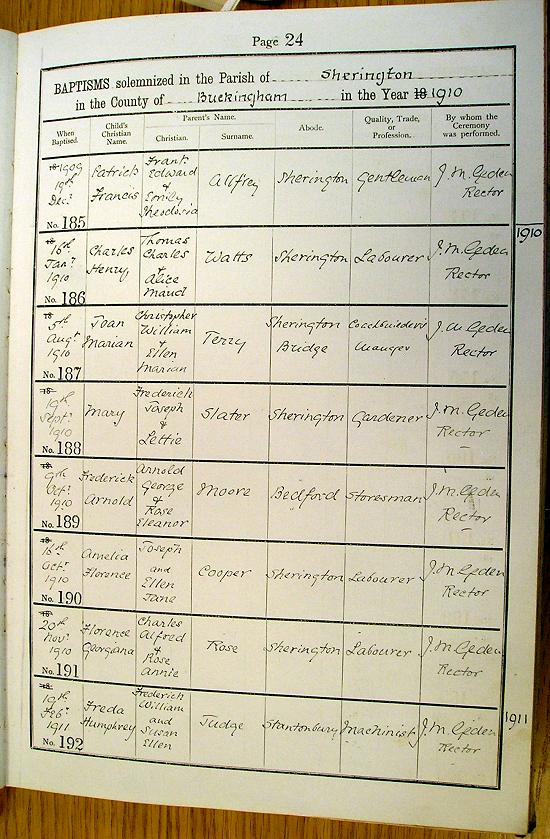 Page 24
BAPTISMS solemnized in the Parish of Sherington
in the County of Buckingham in the Year 18 1910
When Baptised. Child's Christian Name. Parent's Name. Christian. Surname. Abode. Quality, Trade, or Profession. By whom the Ceremony was performed.
18 1909 19th Decr No. 185 Patrick Francis Frank Edward & Emily Theodosia Allfrey Sherington Gentleman J. M. Geden Rector
1910
18 16th Janr 1910 No. 186 Charles Henry Thomas Charles & Alice Maud Watts Sherington Labourer J. M. Geden Rector
18 5th Augt 1910 No. 187 Joan Marian Christopher William & Ellen Marian Terry Sherington Bridge Coachbuilder's Manager J. M. Geden Rector
18 19th Sept 1910 No. 188 Mary Frederick Joseph & Lettie Slater Sherington Gardener J. M. Geden Rector
18 9th Octr 1910 No. 189 Frederick Arnold Arnold George & Rose Eleanor Moore Bedford Storesman J. M. Geden Rector
18 16th Octr 1910 No. 190 Amelia Florence Joseph and Ellen Jane Cooper Sherington Labourer J. M. Geden Rector
18 20th Novr 1910 No. 191 Florence Georgiana Charles Alfred & Rose Annie Rose Sherington Labourer J. M. Geden Rector
1911
18 19th Febr 1911 No. 192 Freda Humphrey Frederick William and Susan Ellen Judge Stantonbury Machinist J. M. Geden Rector